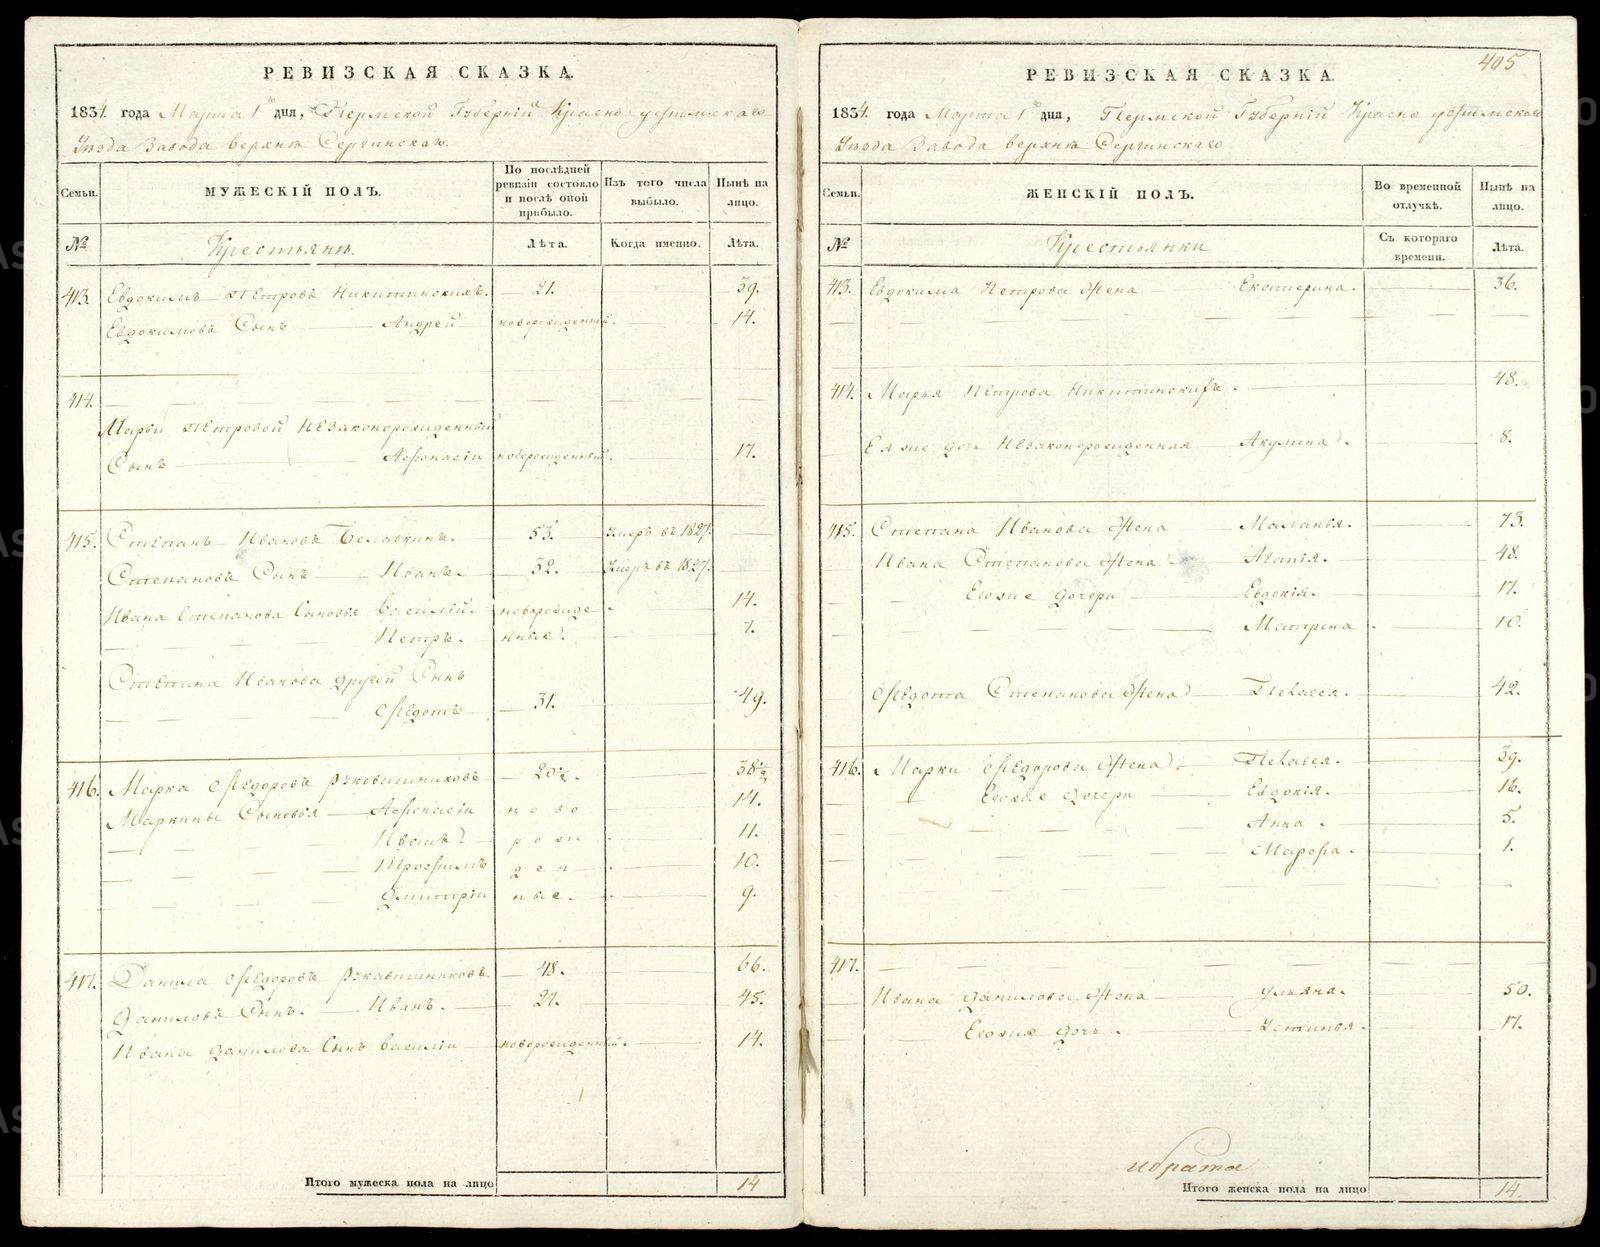 РЕВИЗСКАЯ СКАЗКА.
1834 года Марта 1го дня, Пермской Губерніи Красно уфимскаго
Уезда Завода верхне Сергинскаго.
Семьи.
МУЖЕСКІЙ ПОЛЪ.
По послѣдней ревизіи состояло и послѣ оной прибыло.
Изъ того числа выбыло.
Нынѣ на лицо.
№
Крестьяне.
Лѣта.
Когда именно.
Лѣта.
413. Евдокимъ Петровъ Никитинскихъ. 21. 39.
Евдокимовъ Сынъ Андрей новорожденный. 14.
414.
Марьи Петровой Незаконорожденный
Сынъ Афонасіи новорожденный. 17.
415. Степанъ Ивановъ Белавкинъ. 53. Умеръ въ 1827.
Степановъ Сынъ Иванъ. 32. Умеръ въ 1827.
Ивана Степанова Сыновья Василій. новорожде 14.
Петръ. нные. 7.
Степана Иванова другой Сынъ
Федотъ 31. 49.
416. Марка Федоровъ Рукавишниковъ 20½. 38½
Маркины Сыновья Афонасіи ново 14.
Иванъ рожи 11.
Трофимъ ден 10.
Дмитріи ные. 9.
417. Данила Федоровъ Рукавишниковъ 48. 66.
Даниловъ Сынъ. Иванъ. 27. 45.
Ивана Данилова Сынъ Василіи новорожденный. 14.
Итого мужеска пола на лицо 14
405
РЕВИЗСКАЯ СКАЗКА.
1834 года Марта 1го дня, Пермской Губерніи Красно уфимскаго
Уезда Завода верхне Сергинскаго
Семьи.
ЖЕНСКІЙ ПОЛЪ.
Во временной отлучкѣ.
Нынѣ на лицо.
№
Крестьянки
Съ котораго времени.
Лѣта.
413. Евдокима Петрова Жена Екатерина. 36.
414. Марья Петрова Никитинскихъ. 48.
Ея же дочь Незаконорожденная Акулина. 8.
415. Степана Иванова Жена Маланья. 73.
Ивана Степанова Жена Агапія. 48.
Егоже дочери Евдокія. 17.
Матрена 10.
Федота Степанова Жена Пелагея. 42.
416. Марки Федорова Жена. Пелагея. 39.
Егоже дочери Евдокія. 16.
Анна. 5.
Марфа. 1.
417.
Ивана Данилова Жена Ульяна. 50.
Егоже дочь. Устинья. 17.
Итого женска пола на лицо 14.